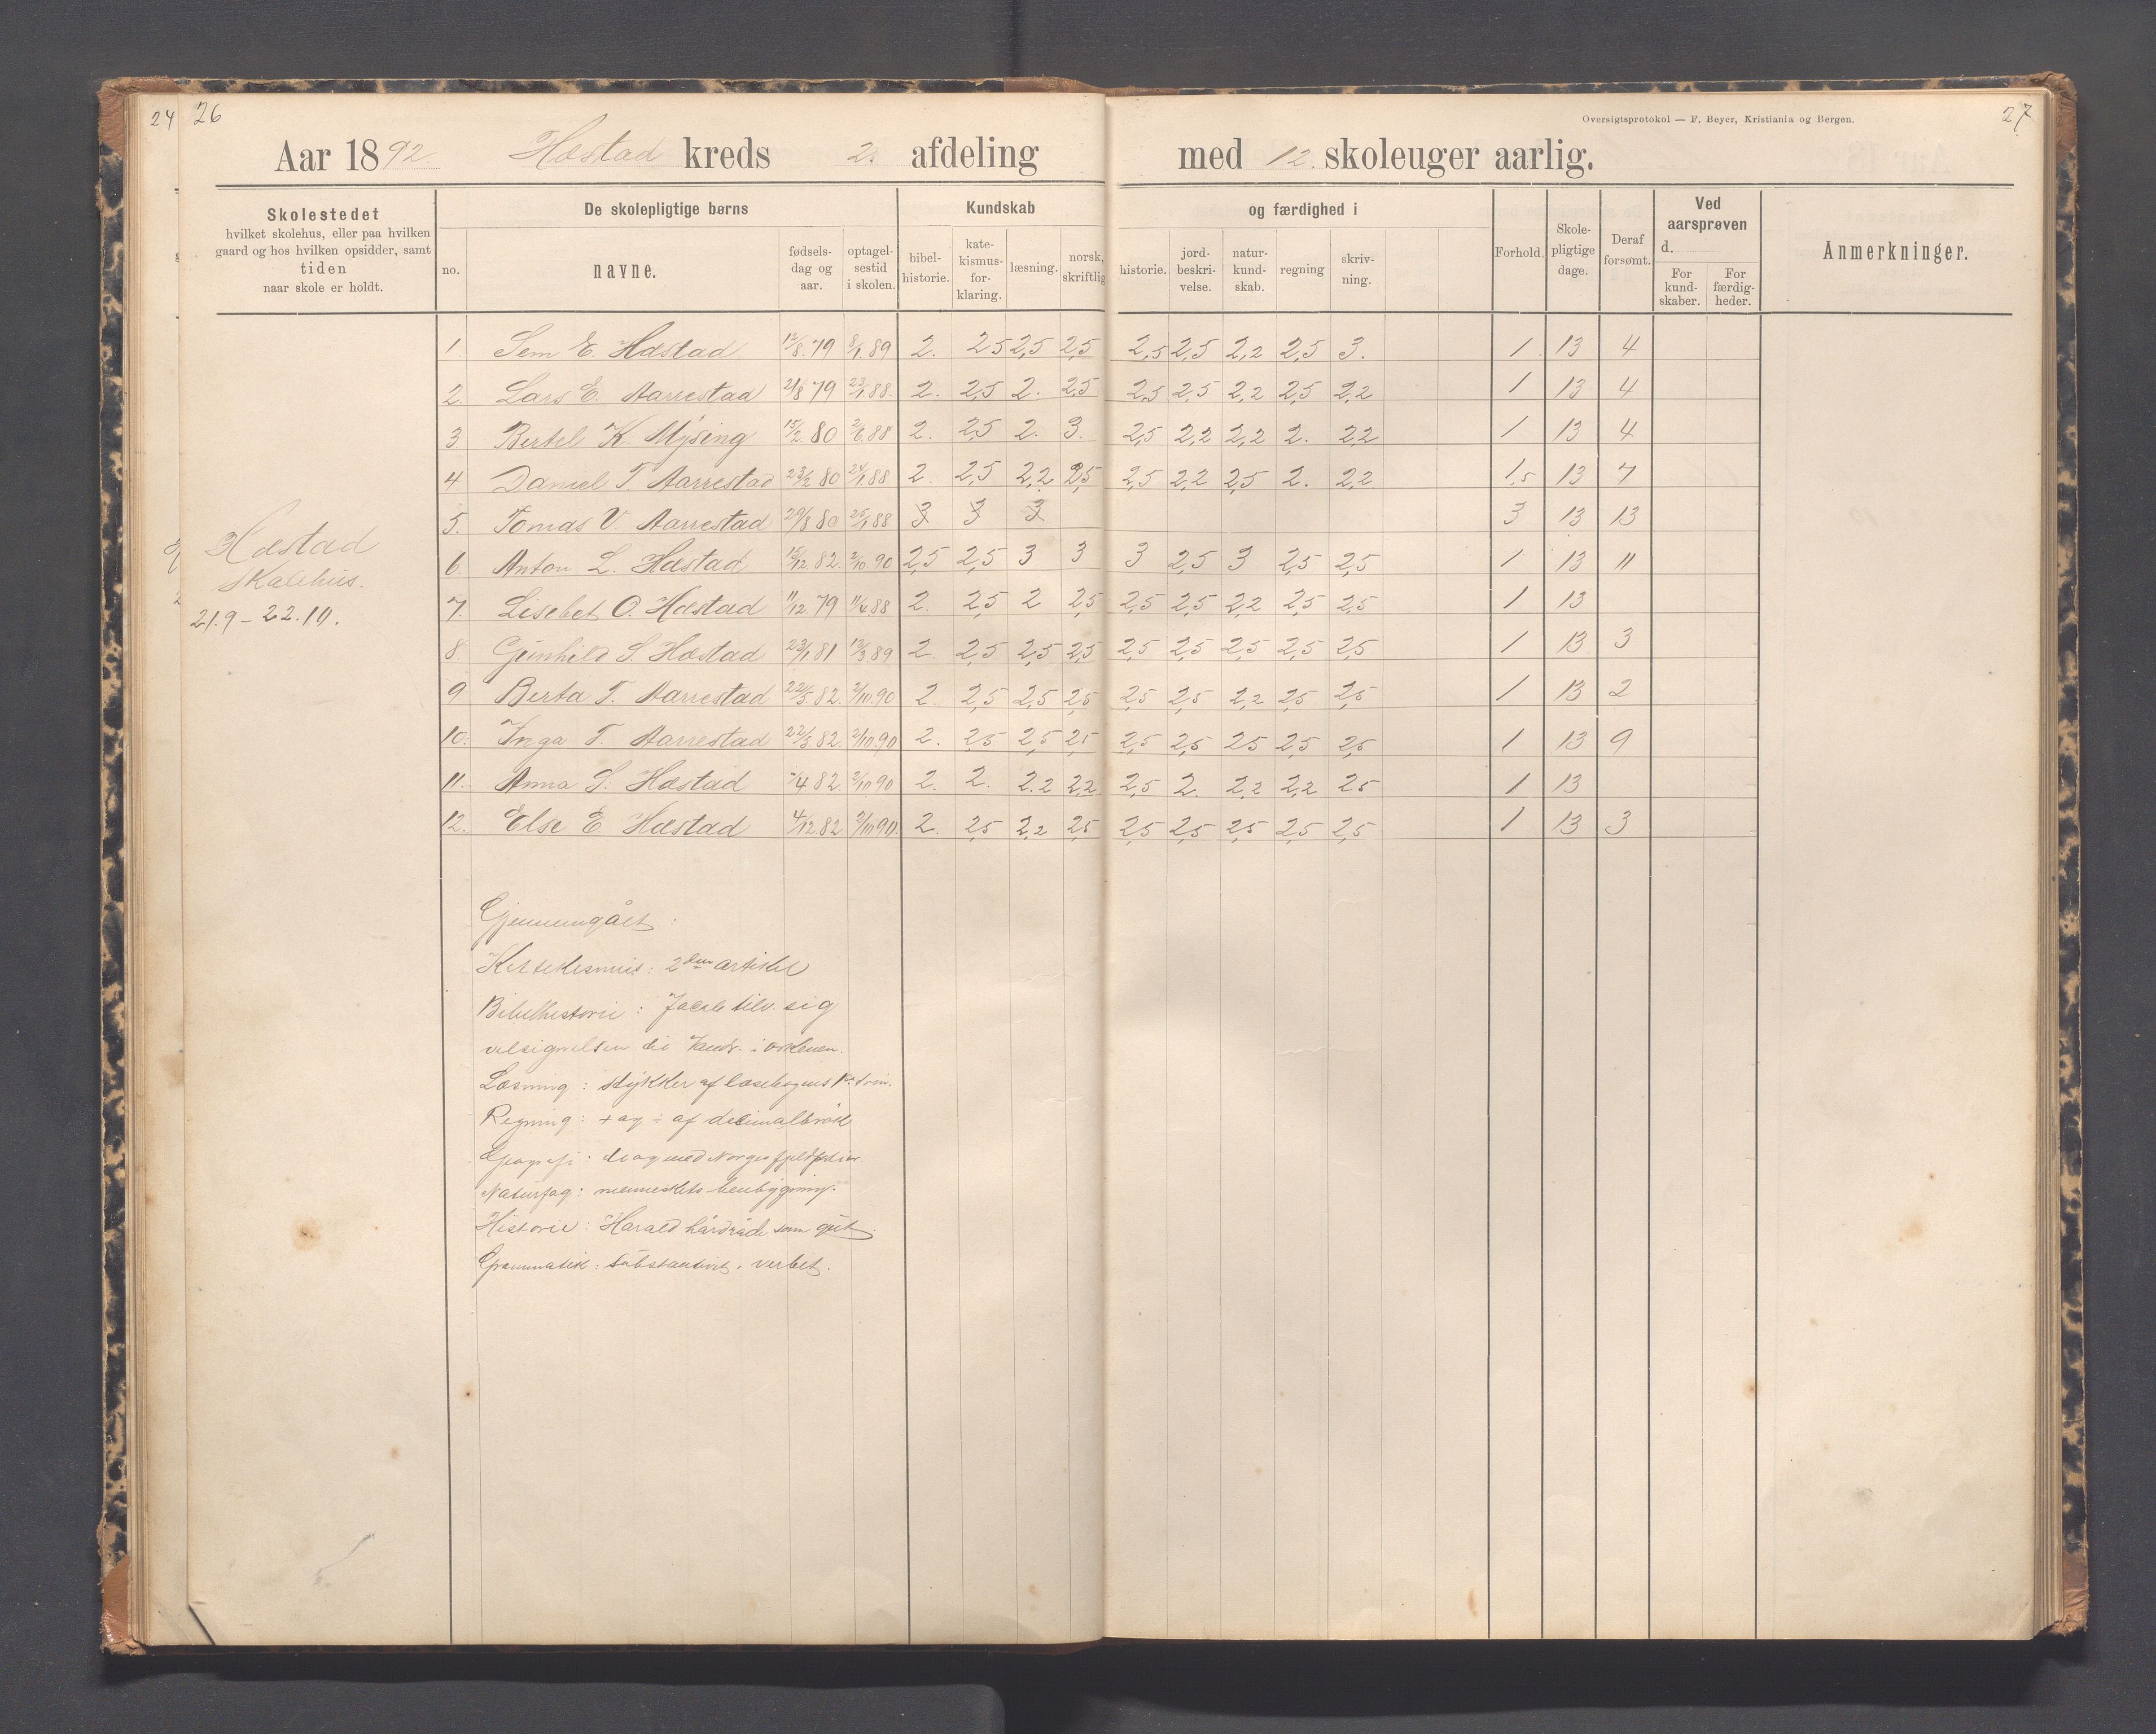 24 26
27
Oversigtsprotokol — F. Beyer, Kristiania og Bergen.
Aar 1892. Hæstad kreds 2. afdeling med 12. skoleuger aarlig.
Skolestedet
hvilket skolehus, eller paa hvilken
gaard og hos hvilken opsidder, samt
tiden
naar skole er holdt.
De skolepligtige børns
no.
navne.
fødsels-
dag og
aar.
optagel-
sestid
i skolen.
Kundskab og færdighed i
bibel-
historie.
kate-
kismus-
for-
klaring.
læsning.
norsk,
skriftlig
historie.
jord-
beskri-
velse.
natur-
kund-
skab.
regning
skriv-
ning.
Forhold.
Skole-
pligtige
dage.
Deraf
forsømt.
Ved
aarsprøven
d.
For
kund-
skaber.
For
færdig-
heder.
Anmerkninger.
1 Sem E. Hæstad 12/8.79 8/1.89 2. 25 2,5 2,5 2,5 2,5 2,2 2,5 3. 1 13 4
2. Lars E. Aarrestad 21/8 79 23/1.88. 2. 2,5 2. 2,5 2,5 2,5 2,2 2,5 2,2 1 13 4
3 Bertel K. Mysing 15/2.80 2/6.88 2. 2,5 2. 3. 2,5 2,2 2,2 2. 2,2 1 13 4
4 Daniel T. Aarrestad 23/2 80 24/1.88 2. 2,5 2,2 2,5 2,5 2,2 2,5 2. 2,2 1,5 13 7
5. Tomas V. Aarrestad 29/8 80 25/1 88 3 3 3 3 13 13
6. Anton L. Hæstad 10/12 82. 2/10 90 2,5 2,5 3 3 3 2,5 3 2,5 2,5 1 13 11
7. Lisebet O. Hæstad 11/12 79 11/4 88 2. 2,5 2 2,5 2,5 2,5 2,2 2,5 2,5 1 13
8. Gunhild S. Hæstad 23/1 81 13/3 89 2. 2,5 2,5 2,5 2,5 2,5 2,5 2,5 2,5 1 13 3
9 Berta T. Aarrestad 22/3 82. 2/10.90 2. 2,5 2,5 2,5 2,5 2,5 2,2 2,5 2,5 1 13 2
10. Inga T. Aarrestad 22/3 82. 2/10.90 2. 2,5 2,5 2,5 2,5 2,5 25 2,5 2,5 1 13 9
11. Anna S. Hæstad 4 82. 2/10 90 2. 2. 2.2 2,2 2,5 2. 2,2 2,2 25 1 13
12. Else E. Hæstad 4/12 82 2/10 90. 2. 2,5 2,2 2,5 2,5 2,5 2,5 2,5 2,5 1 13 3
Hæstad
Skolehus.
21.9 – 22.10.
Gjennemgået:
Kattekismus: 2den artikel
Bibelhistorie: Jacob tilv. sig
velsignelsen til i ørkenen.
Læsning: stykker af læsebogens
Regning: + og ÷ af decimalbrøk
Geografi: til og med Norges
Naturfag: menneskets benbygning.
Historie: Harald hårdråde som gut.
Grammatik: substantivet, verbet.